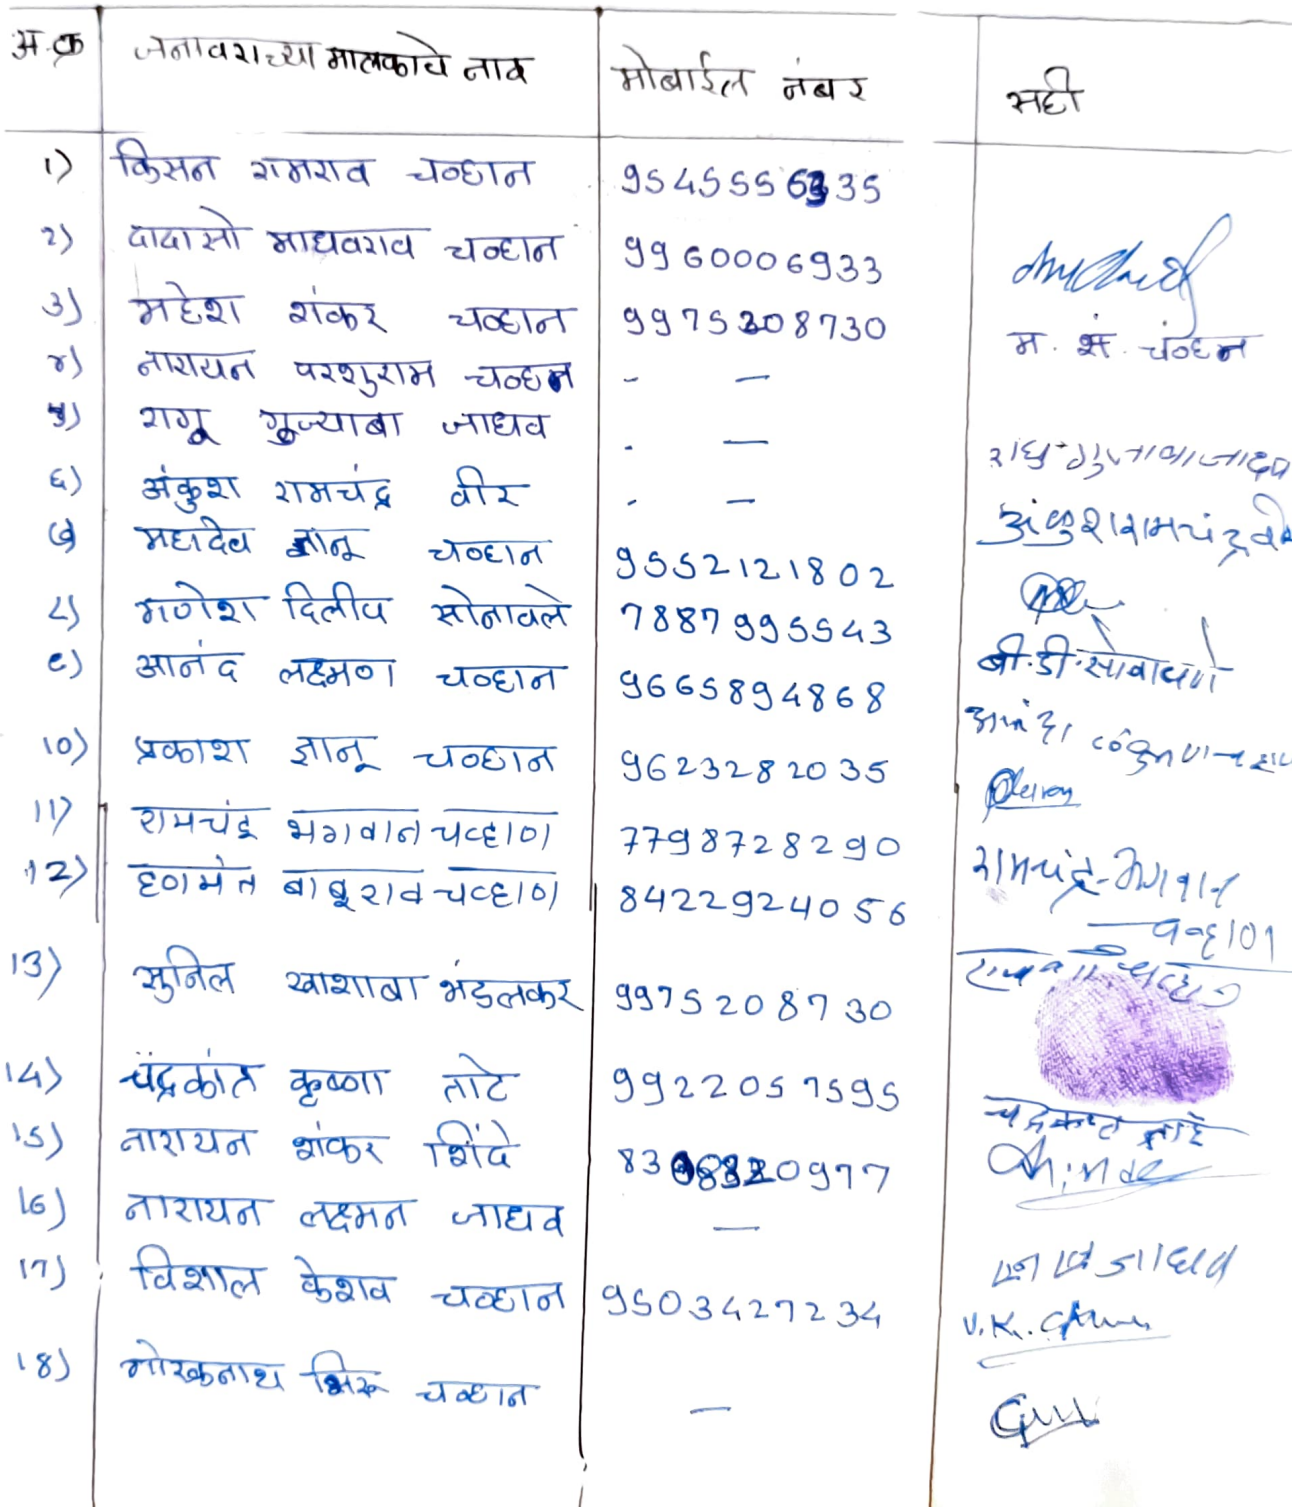 अ.क्र जनावराच्या मालकाचे नाव मोबाईल नंबर सही
1) किसन रामराव चव्हान 9545556335
2) दादासो माधवराव चव्हान 9960006933
3) महेश शंकर चव्हान 9975208730 म. शं. चंव्हन
४) नारायन परशुराम चव्हान - —
५) रागू गुज्याबा जाधव . —
६) अंकुश रामचंद्र वीर . — अंकुश रामचंद्र वीर
७) महादेव ज्ञानू चव्हान 9552121802
८) गणेश दिलीप सोनावले 7887995543 बी.डी.
९) आनंद लक्ष्मण चव्हान 9665894868
10) प्रकाश ज्ञानू चव्हान 9623282035
11) रामचंद्र भगवान चव्हाण 7798728290 रामचंद्र-भगवान
चव्हाण
12) हणमंत बाबूराव चव्हाण 8422924056
13) सुनिल खाशाबा भंडलकर 9975208730
14) चंद्रकांत कृष्णा ताटे 9922057595 चंद्रकांत ताटे
15) नारायन शंकर शिंदे Shinde
16) नारायन लक्ष्मन जाधव — जाधव
17) विशाल केशव चव्हान 9503427234 V.K.
18) गोरकनाथ चव्हान —